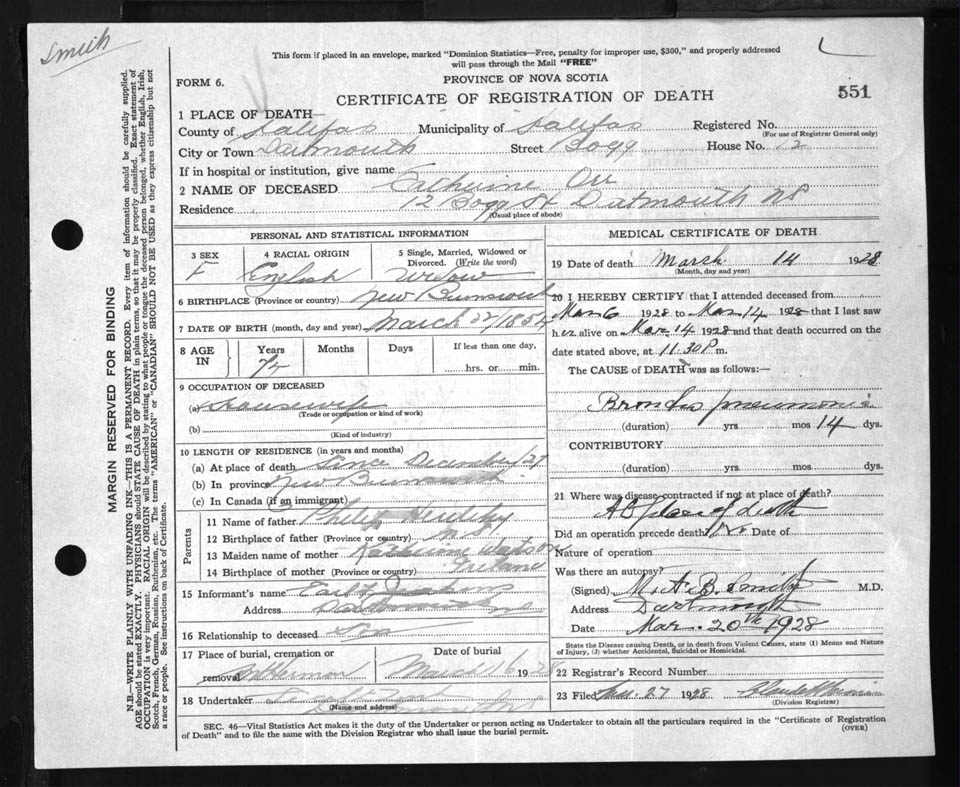 Smith
This form if placed in an envelope, marked "Dominion Statistics—Free, penalty for improper use, $300," and properly addressed
will pass through the Mail "FREE"
FORM 6.
PROVINCE OF NOVA SCOTIA
551
CERTIFICATE OF REGISTRATION OF DEATH
1 PLACE OF DEATH—
County of Halifax Municipality of Halifax Registered No.
(For use of Registrar General only)
City or Town Dartmouth Street Bogg House No. 12
If in hospital or institution, give name
2 NAME OF DECEASED Orr
Residence 12 Bogg St Datmouth NS
(Usual place of abode)
PERSONAL AND STATISTICAL INFORMATION
3 SEX 4 RACIAL ORIGIN 5 Single, Married, Widowed or
Divorced. (Write the word)
F English Widow
6 BIRTHPLACE (Province or country) New Brunswick
7 DATE OF BIRTH (month, day and year) March 22/1854
8 AGE IN Years Months Days If less than one day,
74 hrs. or min.
9 OCCUPATION OF DECEASED
(a) Housewife
(Trade or occupation or kind of work)
(b)
(Kind of industry)
10 LENGTH OF RESIDENCE (in years and months)
(a) At place of death Since December/27
(b) In province New Brunswick
(c) In Canada (if an immigrant)
Parents
11 Name of father Philip
12 Birthplace of father (Province or country) N.S
13 Maiden name of mother Watson
14 Birthplace of mother (Province or country) Ireland
15 Informant's name
Address Dartmouth NS
16 Relationship to deceased Son
17 Place of burial, cremation or
removal Mt Hermon
Date of burial
March 16 1928
18 Undertaker
(Name and address)
Dartmouth NS
MEDICAL CERTIFICATE OF DEATH
19 Date of death March 14 1928
(Month, day and year)
20 I HEREBY CERTIFY that I attended deceased from
Mar 6 1928 to Mar 14 1928 that I last saw
her alive on Mar 14 1928 and that death occurred on the
date stated above, at 11.30 P m.
The CAUSE of DEATH was as follows:—
Broncho pneumonia
(duration) yrs mos 14 dys.
CONTRIBUTORY
(duration) yrs. mos dys.
21 Where was disease contracted if not at place of death?
At place of death
Did an operation precede death? No Date of
Nature of operation
Was there an autopsy?
(Signed) M. A. B. Smith M.D.
Address Dartmouth
Date Mar. 20th 1928
State the Disease causing Death, or in death from Violent Causes, state (1) Means and Nature
of Injury, (2) whether Accidental, Suicidal or Homicidal.
22 Registrar's Record Number
23 Filed Mar. 27 1928
(Division Registrar)
SEC. 46—Vital Statistics Act makes it the duty of the Undertaker or person acting as Undertaker to obtain all the particulars required in the "Certificate of Registration
of Death" and to file the same with the Division Registrar who shall issue the burial permit.
(OVER)
MARGIN RESERVED FOR BINDING
N.B.—WRITE PLAINLY WITH UNFADING INK—THIS IS A PERMANENT RECORD. Every item of information should be carefully supplied.
AGE should be stated EXACTLY. PHYSICIANS should STATE CAUSE OF DEATH in plain terms, so that it may be properly classified. Exact statement of
OCCUPATION is very important. RACIAL ORIGIN will be described by stating to what people or tongue the deceased person belonged, whether English, Irish,
Scotch, French, German, Russian, Ruthenian, etc. The terms "AMERICAN" or "CANADIAN" SHOULD NOT BE USED as they express citizenship but not
a race or people. See instructions on back of Certificate.